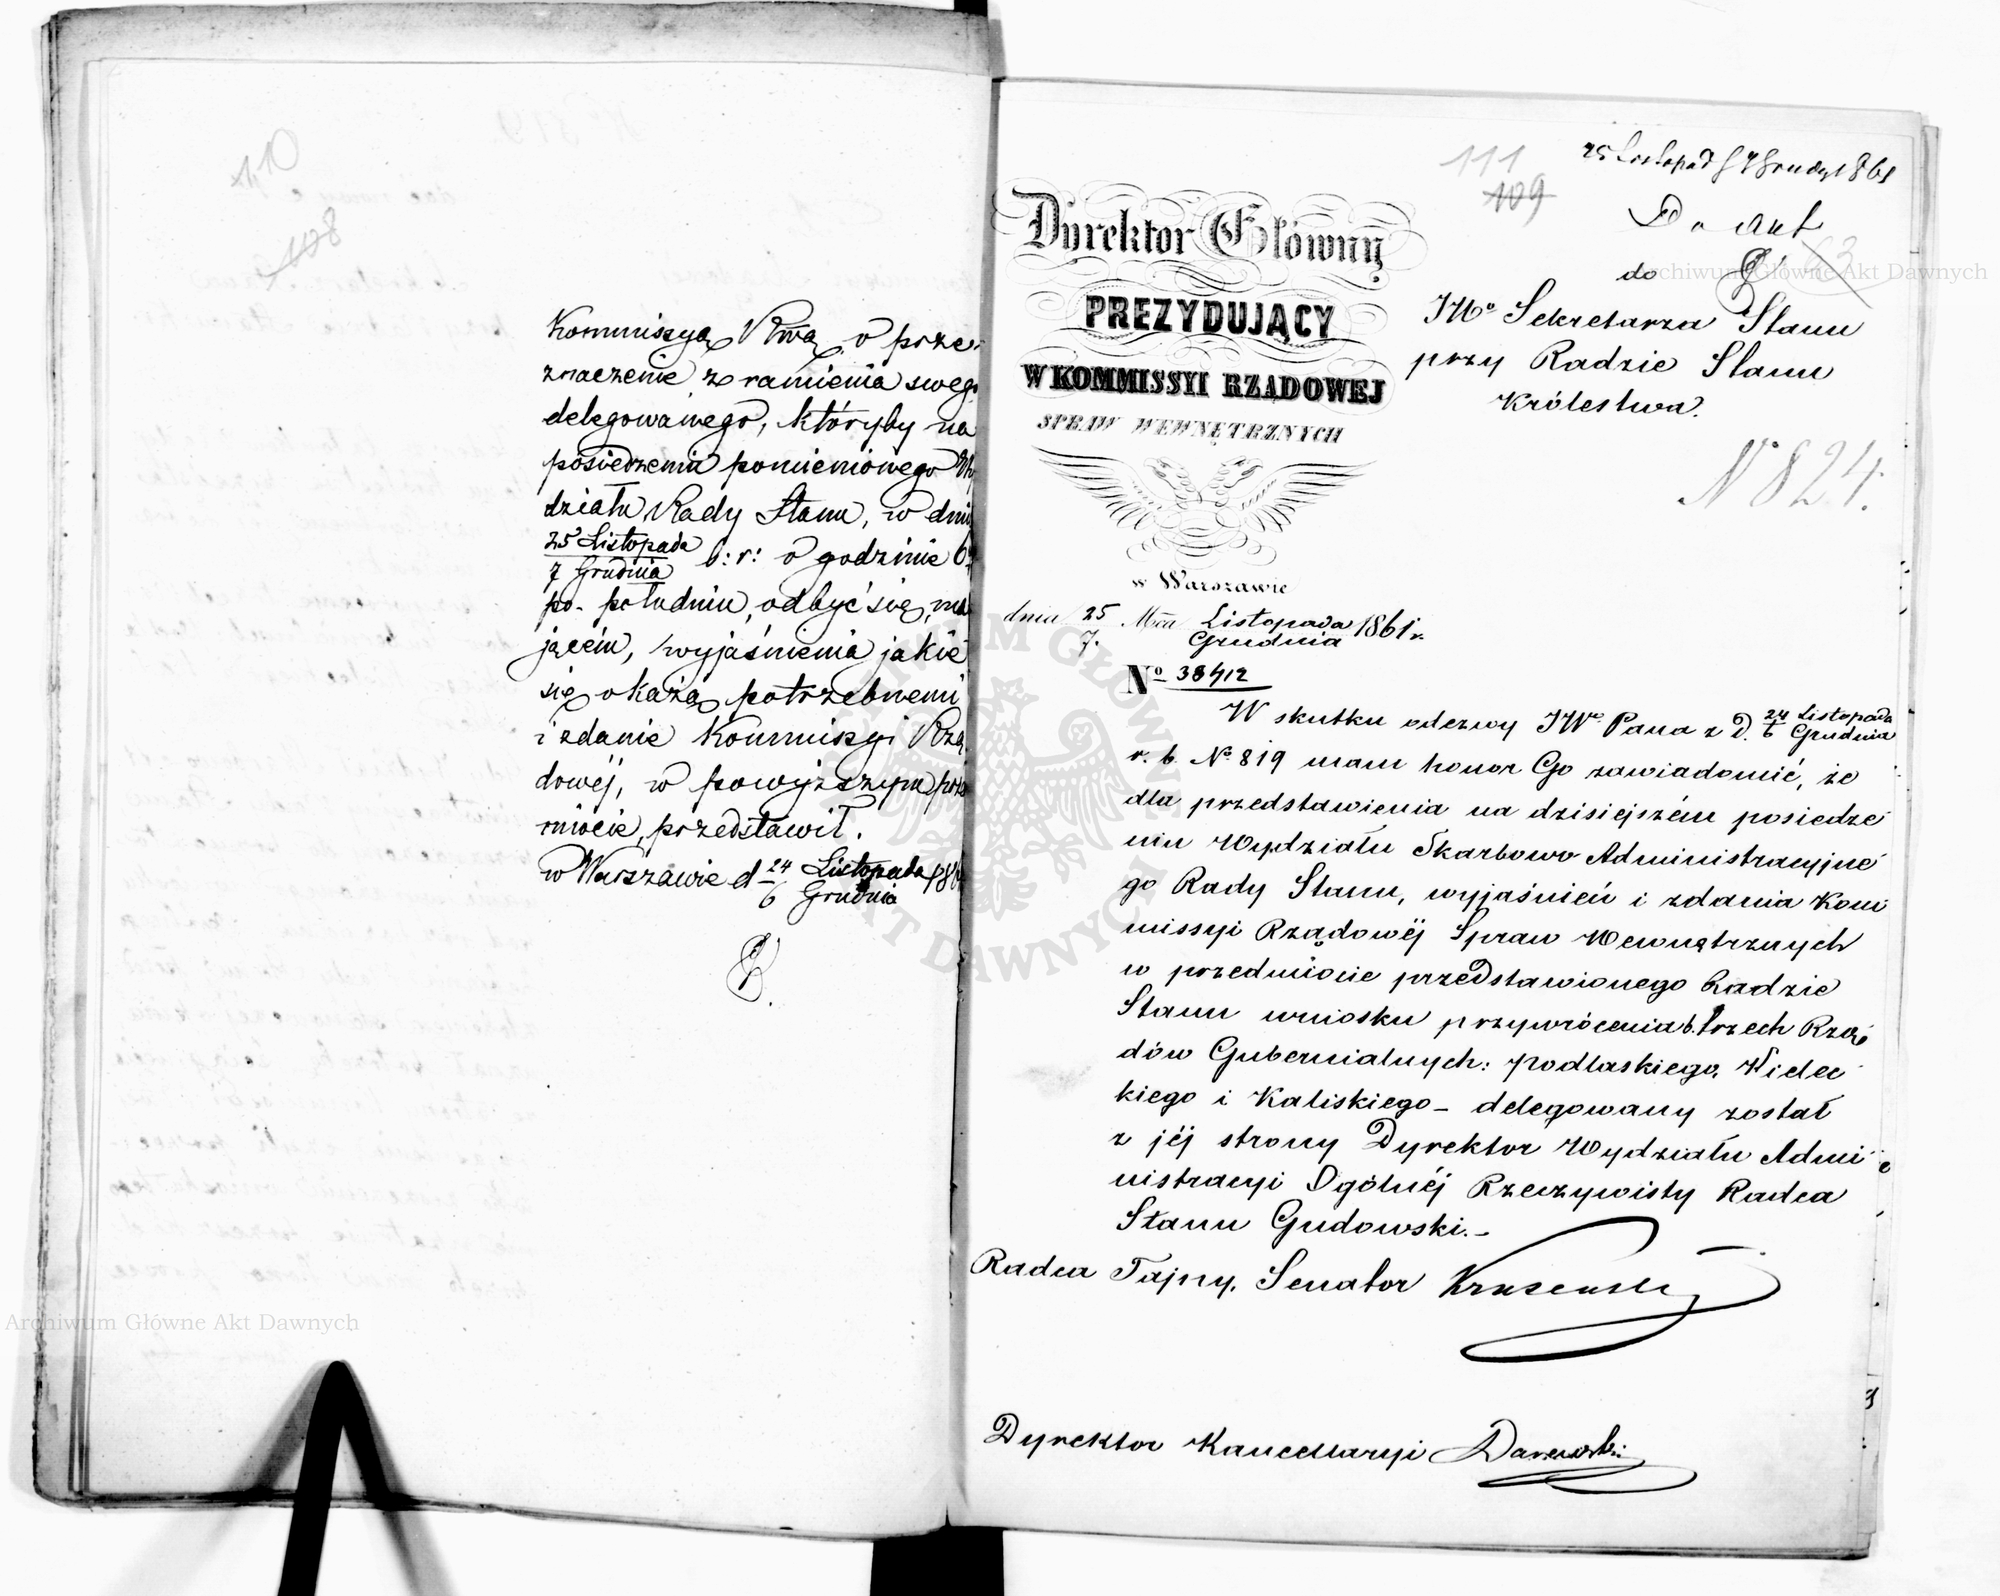 110
108
Kommissyą Rwą o prze-
znaczenie z ramienia swego
delegowanego, któryby na
posiedzeniu pomienionego Wy
działu Rady Stanu, w dniu
25 Listopada
7 Grudnia
b: r: o godzinie 6
po południu, odbyć się ma
jącem, wyjaśnienia jakie
się okażą potrzebnemi
i zdanie Kommissyi Rzą
dowéj, w powyższym przed
miocie, przedstawił.
w Warszawie d 24 Listopada 186
6 Grudnia
111
109
25 Listopad / 7 Grudz 1861
Do akt
63
Dyrektor Główny
PREZYDUJĄCY
W KOMMISSYI RZĄDOWEJ
SPRAW WEWNĘTRZNYCH
do
JWo Sekretarza Stanu
przy Radzie Stanu
Królestwa.
N 824.
w Warszawie
dnia 25 Mca Listopada 1861 r.
7. Grudnia
No 38412
W skutku odezwy JWo Pana z D. 24 Listopada
6 Grudnia
r. b. No 819 mam honor Go zawiadomić, że
dla przedstawienia na dzisiejszém posiedze
niu Wydziału Skarbowo Administracyjne
go Rady Stanu, wyjaśnień i zdania Kom
missyi Rządowéj Spraw Wewnętrznych
w przedmiocie przedstawionego Radzie
Stanu wniosku przywrócenia b. trzech Rzą
dów Gubernialnych: Podlaskiego, Kielec
kiego i Kaliskiego – delegowany został
z jéj strony Dyrektor Wydziału Admi
nistracyi Ogólnéj Rzeczywisty Radca
Stanu Gudowski.–
Radca Tajny, Senator Krusenstern
Dyrektor Kancellaryi
Archiwum Główne Akt Dawnych
Archiwum Główne Akt Dawnych
ARCHIWUM GŁÓWNE AKT DAWNYCH